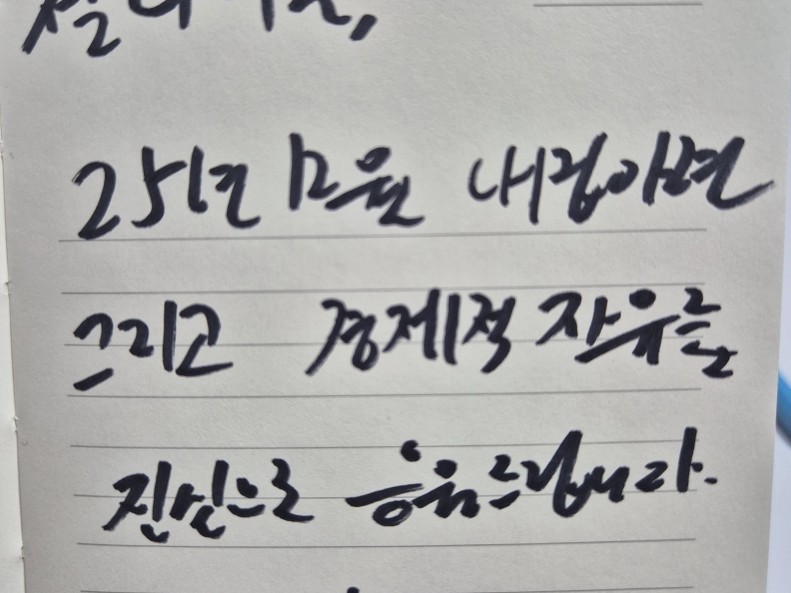 25년 12월 내집마련
그리고 경제적 자유를
진심으로 응원드립니다.